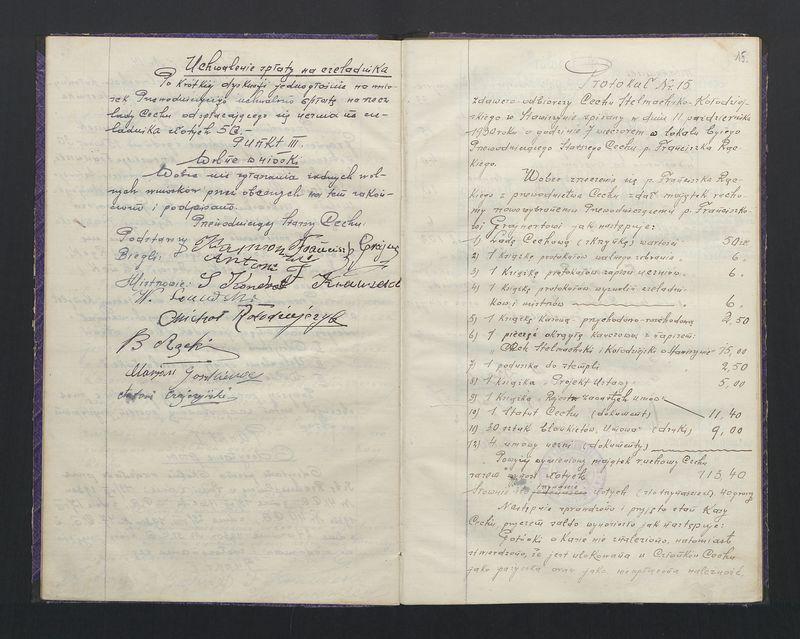 Uchwalenie spłaty na czeladnika
Po krótkiej dyskusji jednogłośnie na wnio-
sek Przewodniczącego uchwalono spłaty na rzecz
kady Cechu od spłacającego się ucznia na cze-
ladnika złotych 50.-
Punkt III.
Wolne wnioski
Wobec nie zgłaszania żadnych wol-
nych wniosków przez obecnych na tem zakoń-
czono i podpisano.
Przewodniczący Starszy Cechu:
Podstarszy
Biegli: Antoni
Mistrzowie:
Michał Kołodziejczyk
B Rącki
Marjan
Antoni
15.
Protokuł Nr. 15
zdawczo odbiorczy Cechu Stelmachsko-Kołodziej-
skiego w Stawiszynie spisany w dniu 11 października
1930 roku o godzinie 7 wieczorem w lokalu byłego
Przewodniczącego Starszego Cechu p. Franciszka Rąc-
kiego.
Wobec zrzeczenia się p. Franciszka Rąc-
kiego z przewodnictwa Cechu zdał majątek rucho-
my nowowybranemu Przewodniczącemu p. Franciszko-
wi Grajnertowi jak następuje:
1) Ladę Cechową (skrzynkę) wartości 50 zł.
2) 1 książkę protokułów walnego zebrania . 6.
3) 1 książkę protokułów zapisu uczniów . 6.
4) 1 książkę protokułów wyzwolin czeladni-
ków i mistrzów 6.
5) 1 książkę kasową przychodowo-rozchodową 2,50
6) 1 pieczęć okrągłą kauczową z napisem:
"Cech Stelmachski i Kołodziejski w Stawiszynie" 15,00
7) 1 poduszka do stempli 2,50
8) 1 książka "Projekt Ustawy" 5,00
9) 1 książka "Rejestr zawartych umów"
10) 1 Statut Cechu (dokument) 11,40
11) 30 sztuk blankietów "Umowa" (druki) 9,00
12) 4 umowy uczni (dokumenty)
Powyżej wymieniony majątek ruchomy Cechu
razem złotych 113,40
Słownie sto trzynaście złotych (sto trzynaście) 40 groszy
Następnie sprawdzono i przyjęto stan Kasy
Cechu przyczem saldo wynosiło jak następuje:
Gotówki w kasie nie znaleziono, natomiast
stwierdzono, że jest ulokowana u Członków Cechu
jako pożyczka oraz jako niewpłacona należność.